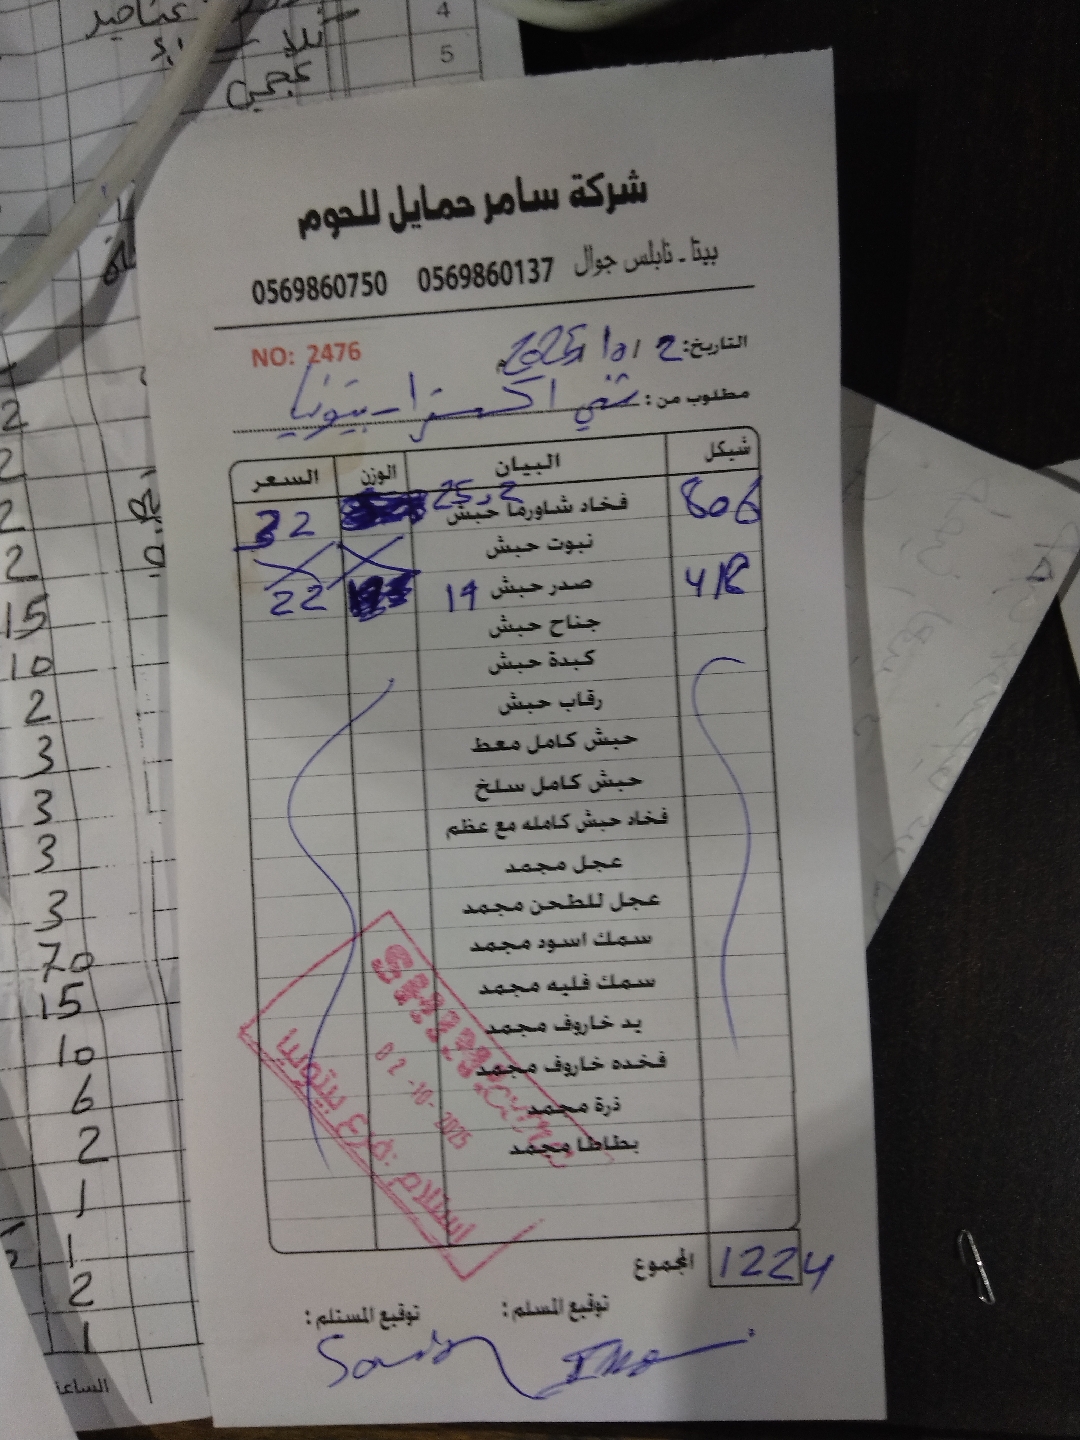 شركة سامر حمايل للحوم
بيتا - نابلس جوال 0569860137 0569860750
NO: 2476
التاريخ: 2 / 10 / 2025م
مطلوب من: شفي اكسترا - بيتونيا
شيكل البيان الوزن السعر
806 فخاد شاورما حبش 25,2 32
نبوت حبش
418 صدر حبش 19 22
جناح حبش
كبدة حبش
رقاب حبش
حبش كامل معط
حبش كامل سلخ
فخاد حبش كامله مع عظم
عجل مجمد
عجل للطحن مجمد
سمك اسود مجمد
سمك فليه مجمد
يد خاروف مجمد
فخده خاروف مجمد
ذرة مجمد
بطاطا مجمد
02 -10- 2025
استلام: فرع بيتونيا
المجموع 1224
توقيع المسلم: توقيع المستلم:
4
5
2
2
2
2
15
10
2
3
3
3
3
70
15
10
6
2
1
1
2
1
الساعة